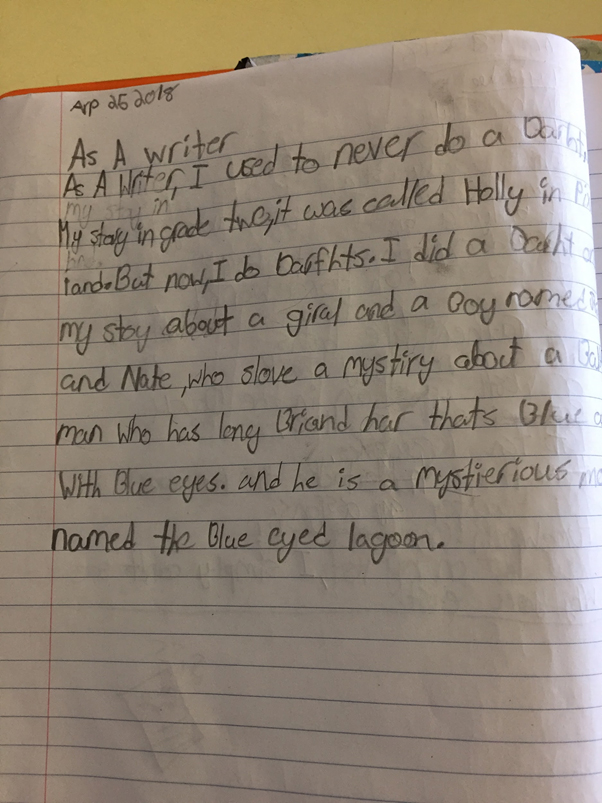 Arp 25 2018
As A writer
As A Writer, I used to never do a Darht,
my sty in
My story in grade two, it was called Holly in
iand. But now, I do Darfhts. I did a Darht
my stoy about a giral and a Boy named
and Nate, who slove a mystiry about a
man who has long Briand har thats Blue
With Blue eyes. and he is a mystierious
named the Blue eyed lagoon.